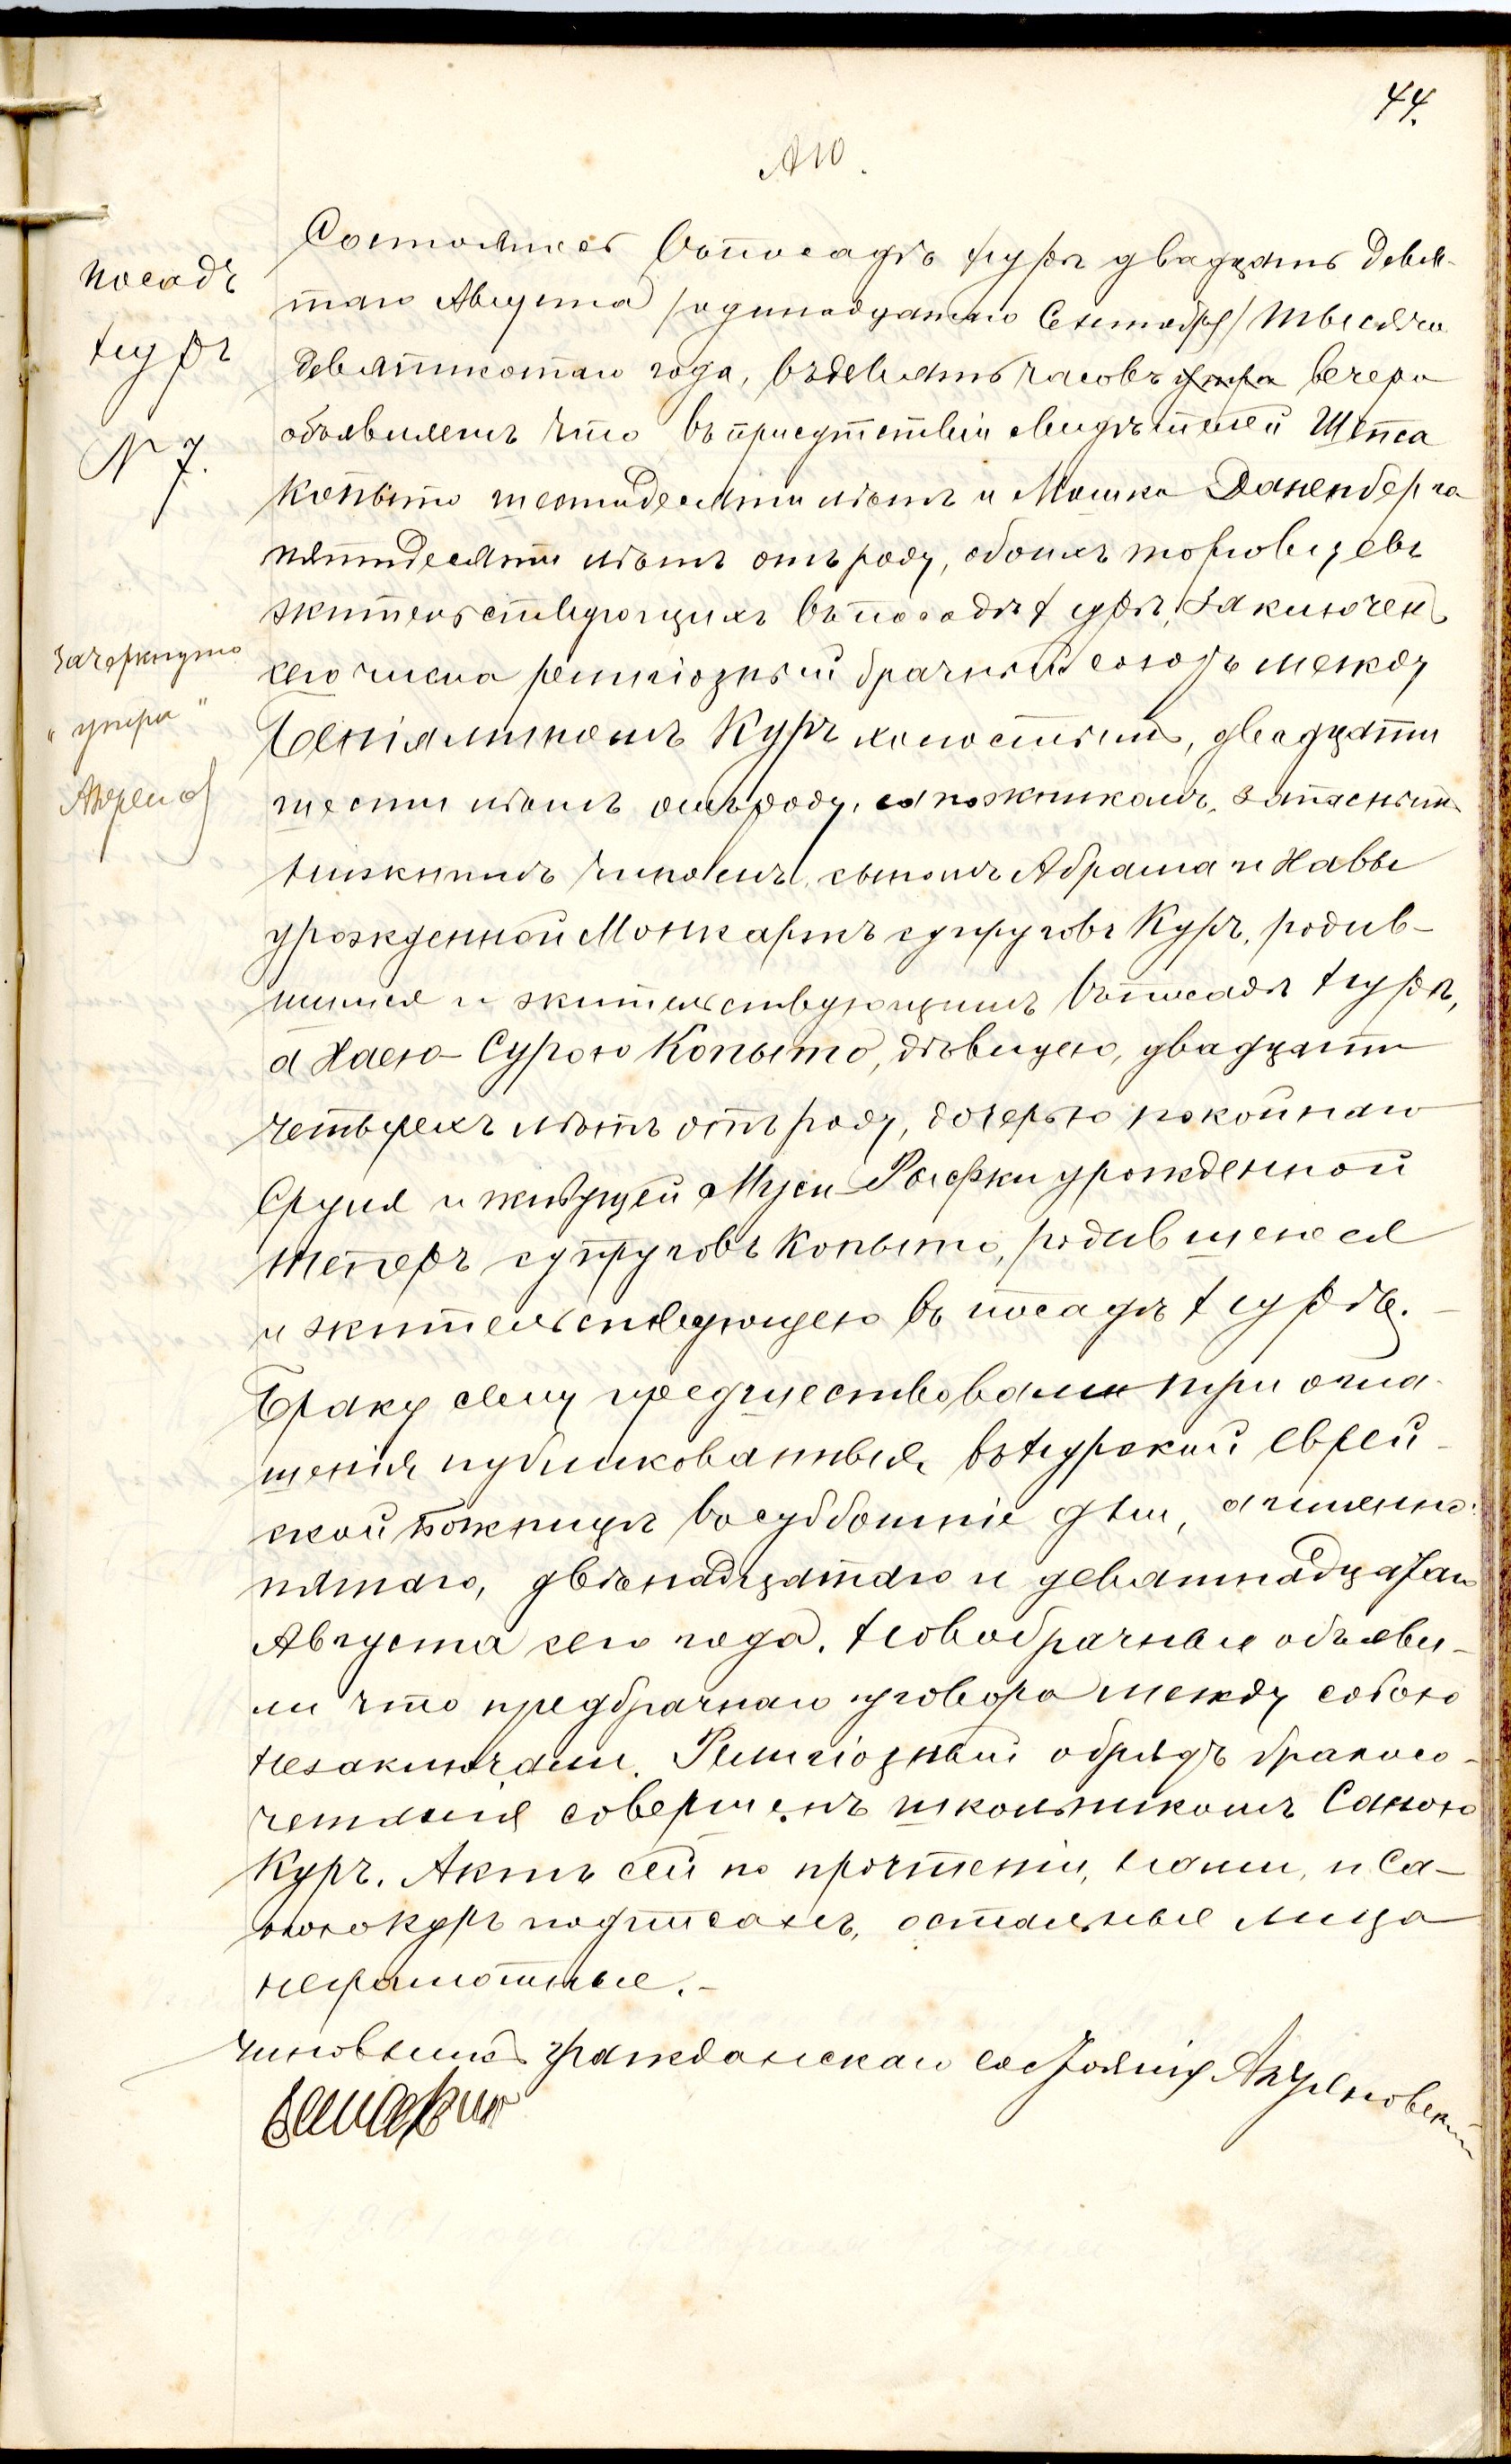 44.
А10.
Посадъ
Нуръ
N 7.
Состоялось въ посадѣ Нурѣ двадцать девя-
таго Августа /одинадцатаго Сентября/ тысяча
девятисотаго года, въ девять часовъ утра вечера
объявляемъ что въ присутствіи свидѣтелей Шепса
Копыто шестидесяти лѣтъ и Мошка Даненберга
пятидесяти лѣтъ отъ роду, обоихъ торговцевъ
жительствующихъ въ посадѣ Нурѣ, заключенъ
сего числа религіозный брачный союзъ между
Беніяминомъ Куръ холостымъ, двадцати
шести лѣтъ отъ роду, сапожникомъ, запаснымъ
нижнимъ чиномъ, сыномъ Абрама и Хаввы
урожденной Монкаржъ супруговъ Куръ, родив-
шимся и жительствующимъ въ посадѣ Нурѣ,
а Хаею-Сурою Копыто, дѣвицею, двадцати
четырехъ лѣтъ отъ роду, дочерью покойнаго
Сруля и живущей Муси-Рафки урожденной
Теперъ супруговъ Копыто, родившеюся
и жительствующею въ посадѣ Нурѣ.-
Браку сему предшествовали три огла-
шенія публикованныя въ Нурской еврей-
ской Божницѣ въ субботніе дни, а именно:
пятаго, двѣнадцатаго и девятнадцатаго
Августа сего года. Новобрачные объяви-
ли что предбрачнаго уговора между собою
незаключали. Религіозный обрядъ бракосо-
четанія совершенъ школьникомъ Саною
Куръ. Актъ сей по прочтеніи, Нами, и Са-
ною Куръ подписанъ, остальные лица
неграмотные.-
Чиновникъ гражданскаго состоянія
Зачеркнуто
"утра"